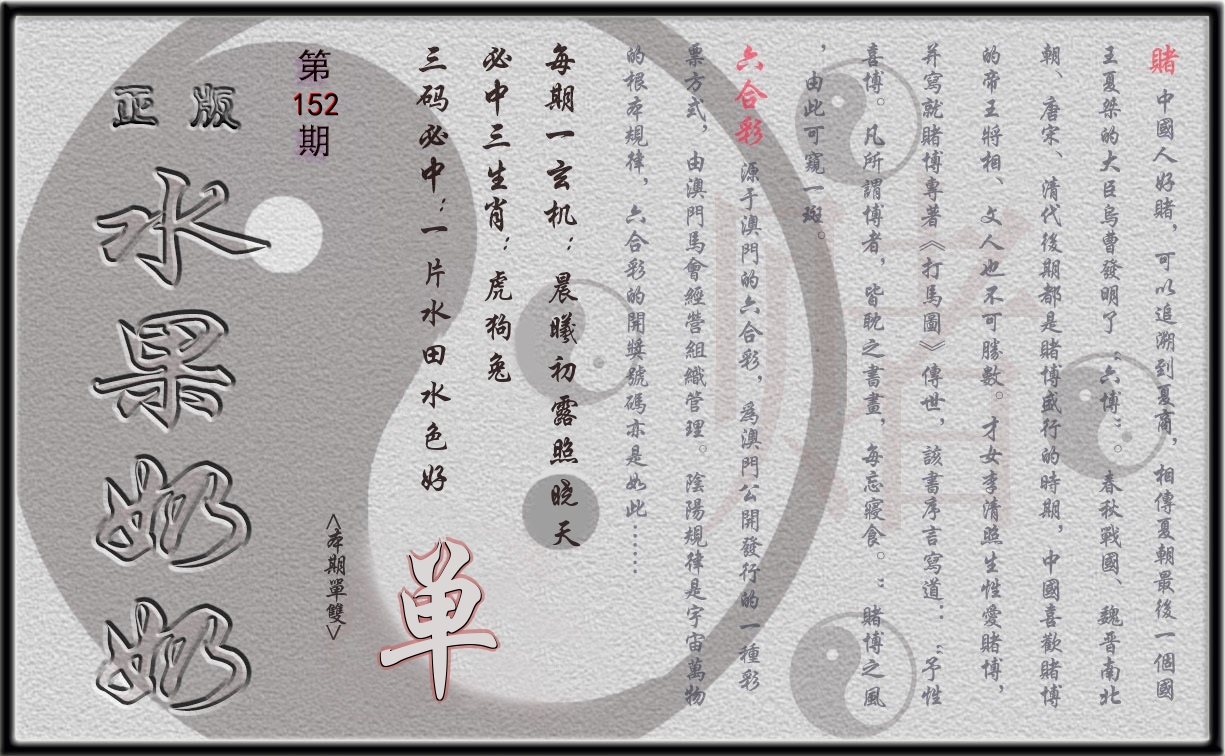 賭 中國人好賭，可以追溯到夏商，相傳夏朝最後一個國
王夏桀的大臣烏曹發明了“六博”。春秋戰國、魏晉南北
朝、唐宋、清代後期都是賭博盛行的時期，中國喜歡賭博
的帝王將相、文人也不可勝數。才女李清照生性愛賭博，
并寫就賭博專著《打馬圖》傳世，該書序言寫道：“予性
喜博。凡所謂博者，皆耽之書畫，每忘寢食。：賭博之風
，由此可窺一斑。
六合彩 源于澳門的六合彩，爲澳門公開發行的一種彩
票方式，由澳門馬會經營組織管理。陰陽規律是宇宙萬物
的根本規律，六合彩的開獎號碼亦是如此……
每期一玄机：晨曦初露照晓天
必中三生肖：虎狗兔
三码必中：一片水田水色好
单
<本期單雙>
第
152
期
正版
水果奶奶
賭